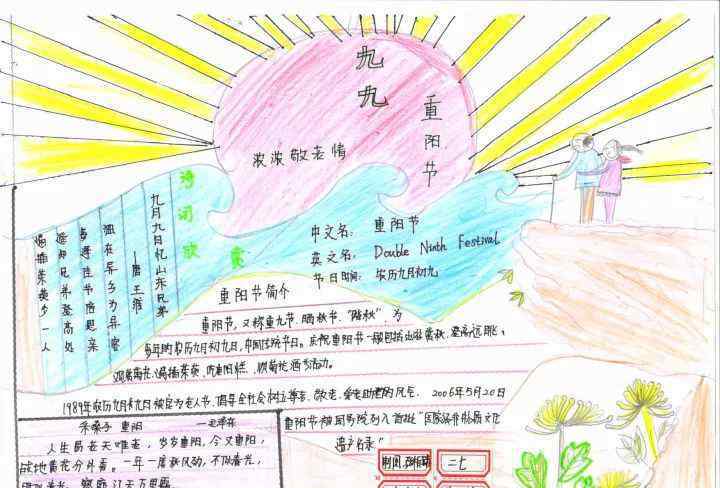 九九
重阳节
浓浓敬老情
诗词欣赏
九月九日忆山东兄弟
——唐 王维
独在异乡为异客
每逢佳节倍思亲
遥知兄弟登高处
遍插茱萸少一人
中文名: 重阳节
英文名: Double Ninth Festival
节日时间: 农历九月初九
重阳节简介
重阳节,又称重九节、晒秋节、“踏秋”,为
每年的农历九月初九日,中国传统节日。庆祝重阳节一般包括出游赏秋、登高远眺、
观赏菊花、遍插茱萸、吃重阳糕、饮菊花酒等活动。
1989年农历九月初九日被定为老人节,倡导全社会树立尊老、敬老、爱老、助老的风气。2006年5月20日
重阳节被国务院列入首批“国家级非物质文化
遗产名录”
采桑子 重阳 ——毛泽东
人生易老天难老,岁岁重阳,今又重阳,
战地黄花分外香。一年一度秋风劲,不似春光,
二七